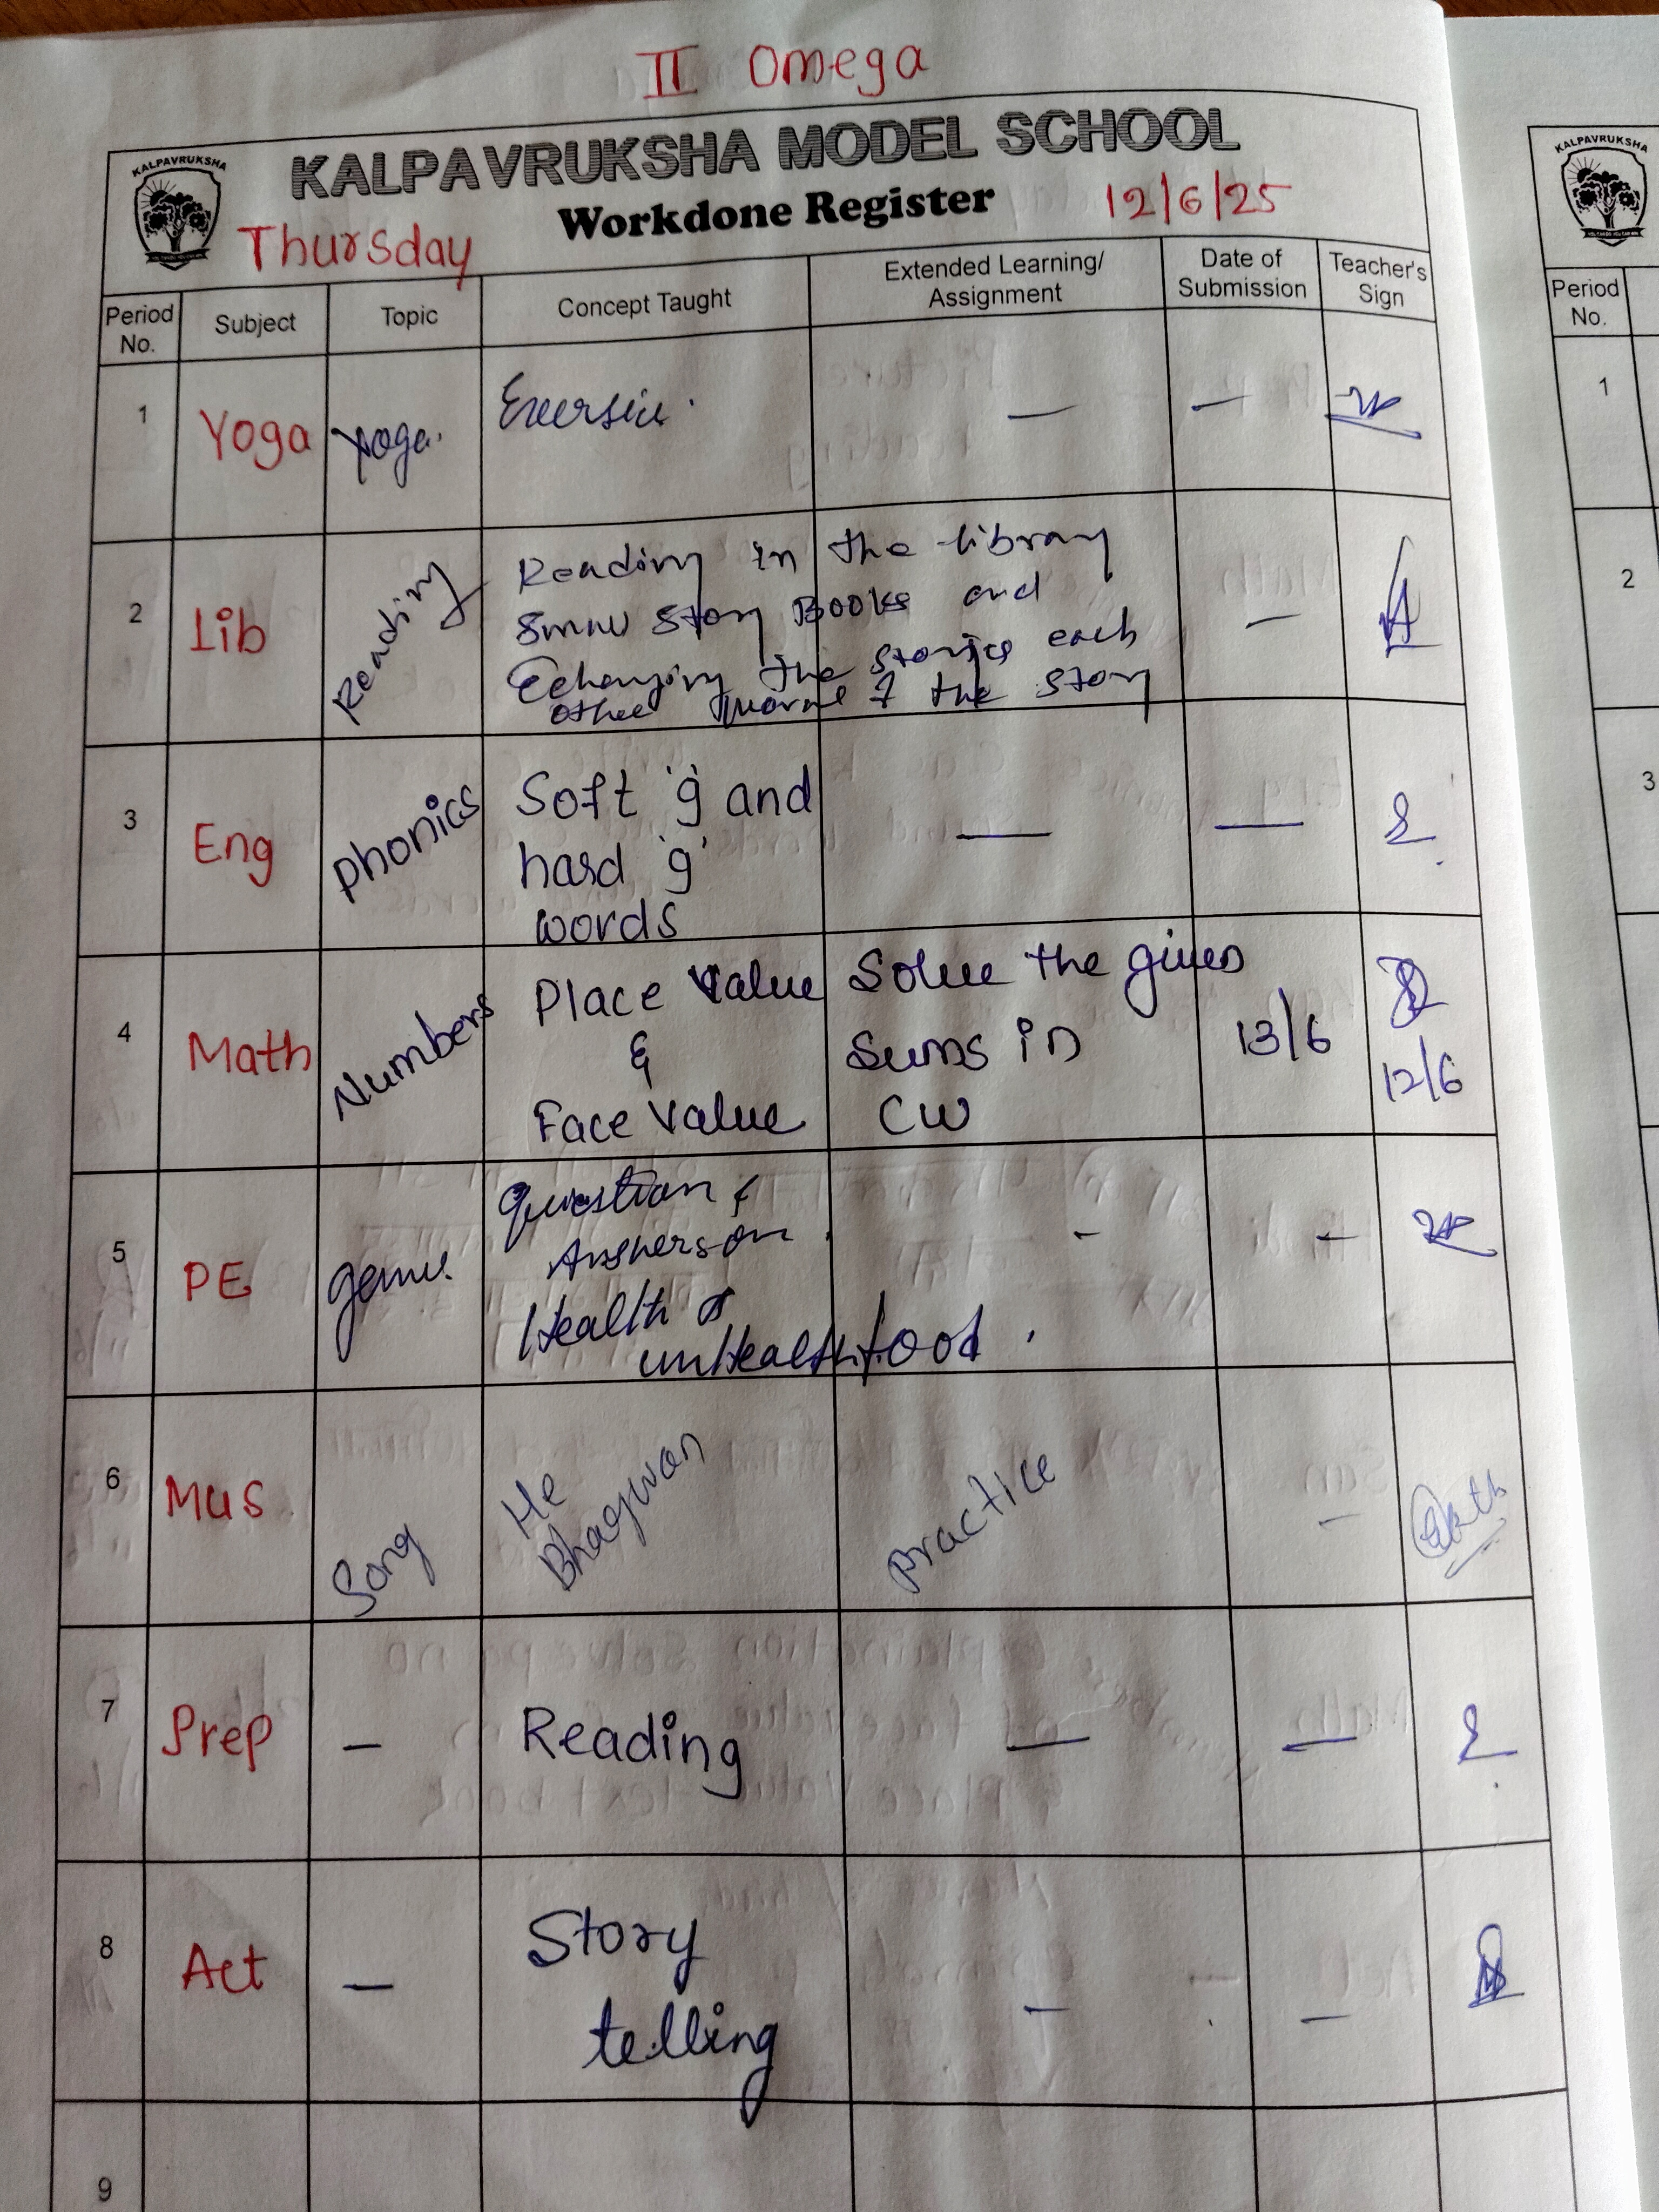 II Omega
KALPAVRUKSHA
KALPAVRUKSHA MODEL SCHOOL
Workdone Register
Thursday
12/6/25
Period No.
Subject
Topic
Concept Taught
Extended Learning/
Assignment
Date of
Submission
Teacher's
Sign
1
Yoga
Yoga.
—
—
2
Lib
Reading
Reading in the library
Story Books and
the stories each
other the story
—
3
Eng
Phonics
Soft 'g' and
hard 'g'
words
—
—
4
Math
Numbers
Place Value
&
Face Value
Solve the given
sums in
CW
13/6
12/6
5
PE
Question &
Answers on
Health &
unHealth food.
-
-
6
Mus
Song
He
Bhagwan
Practice
-
7
Prep
—
Reading
—
—
8
Act
—
Story
telling
—
—
9
KALPAVRUKSHA
Period
No.
1
2
3